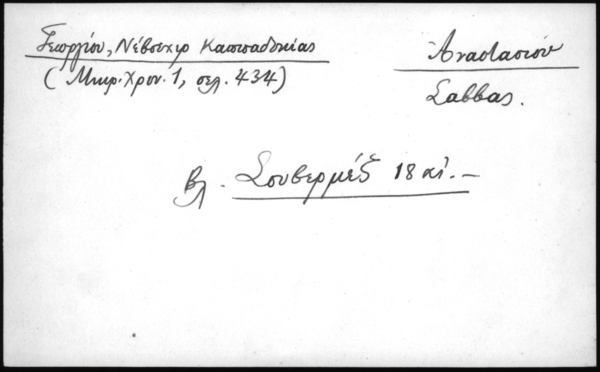 Γεωργίου, Νέβσεχιρ Καππαδοκίας
(Μικρ. Χρον. 1, σελ. 434)
Αναστασίου
Σάββας.
Βλ. Σουβερμέζ 18 αἰ. –